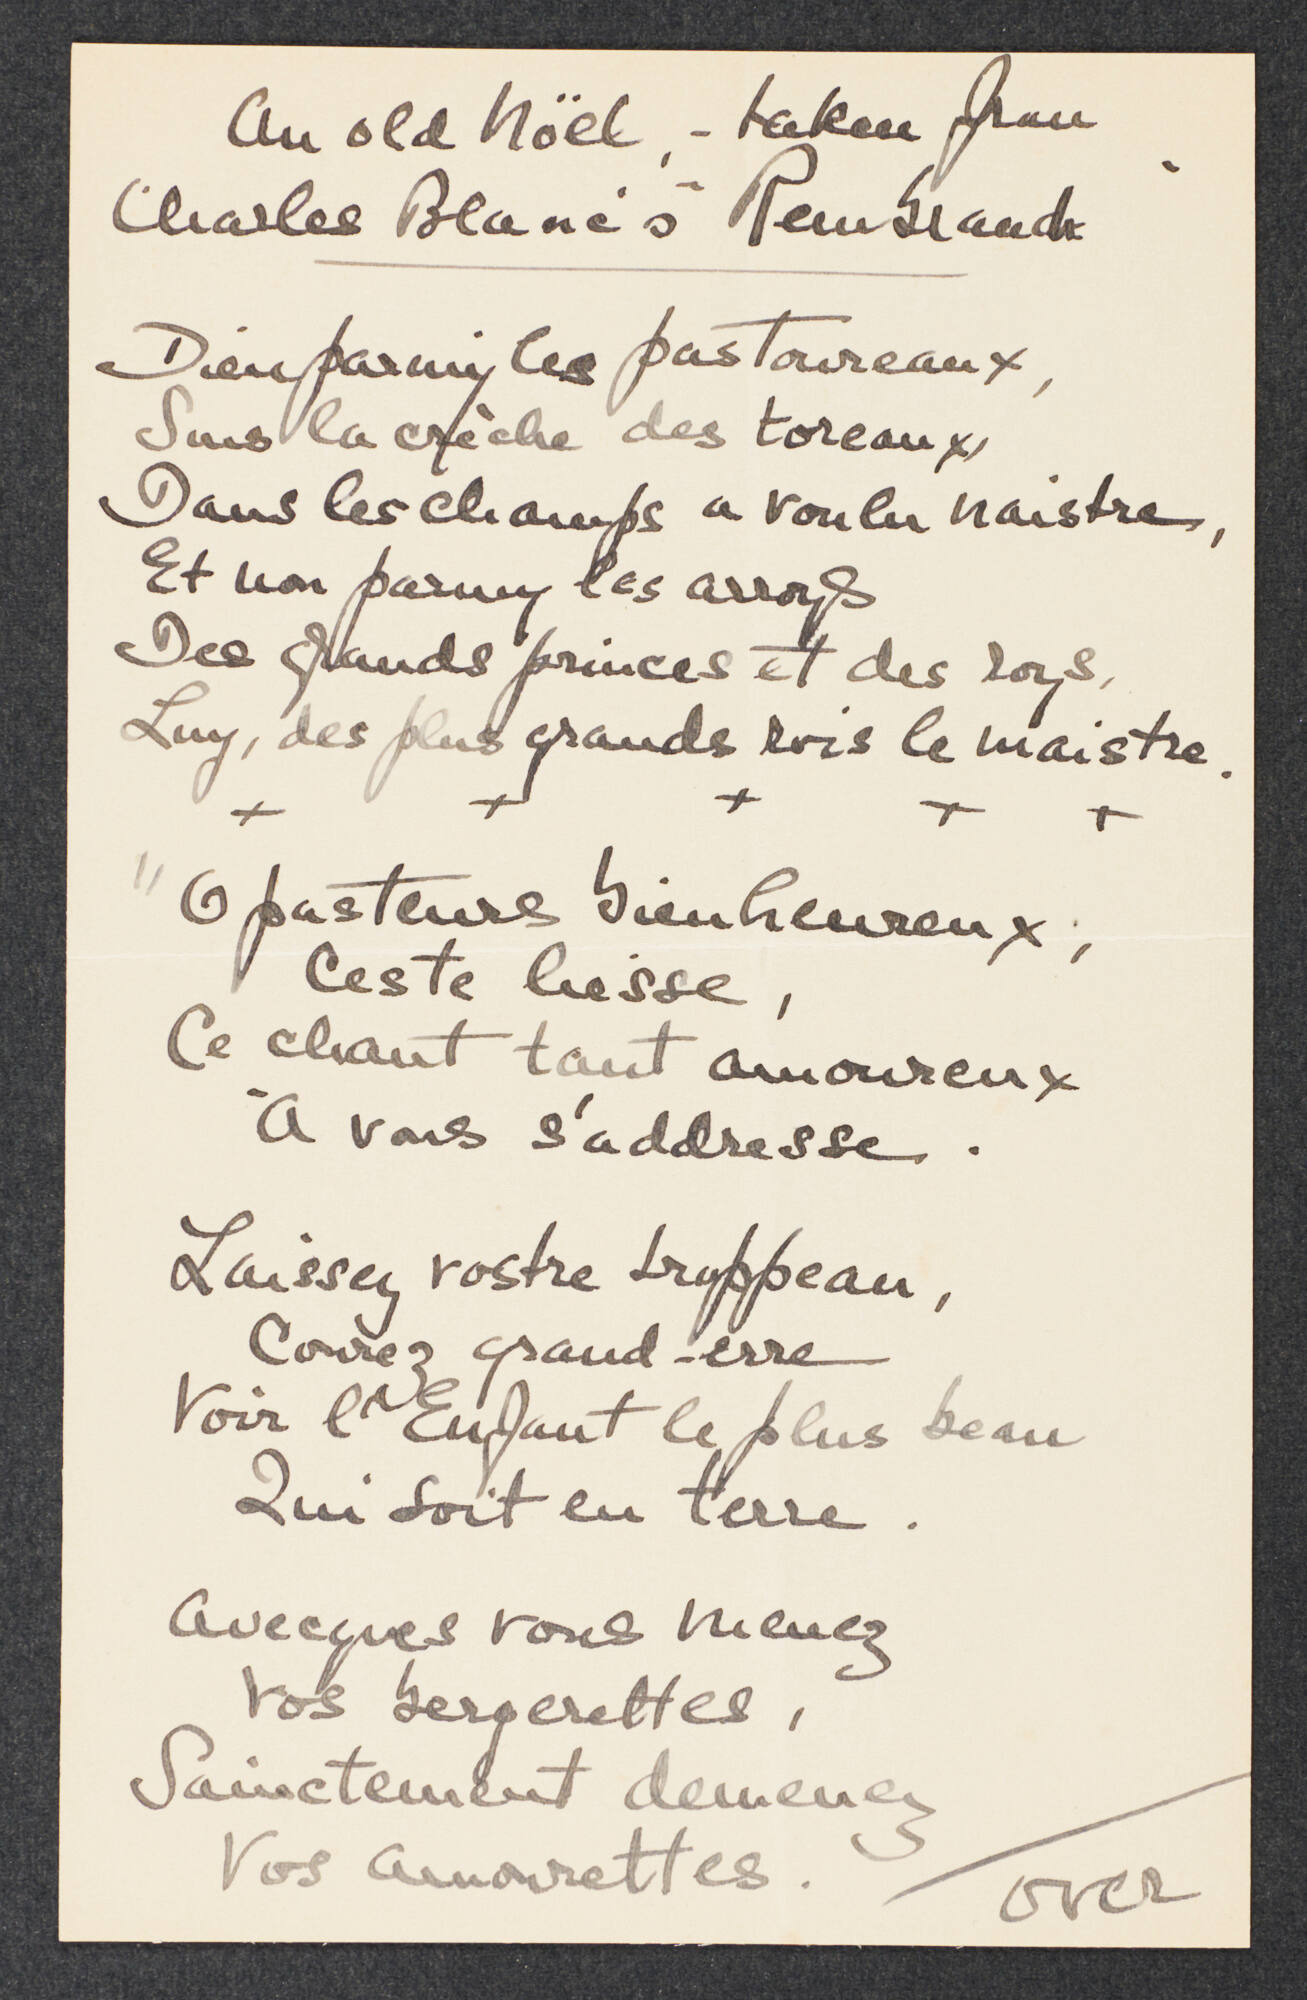 An old Nöel, - taken from
Charles Blanc's "Rembrandt"
Dieu parmy les pastoureaux,
Sous la crèche des toreaux,
Dans les champs a voulu naistre,
Et non parmy les arroys
Des grands princes et des roys,
Luy, des plus grands rois le maistre.
+ + + + +
"O pasteurs bienheureux,
Ceste liesse,
Ce chant tant amoureux
A vous s'addresse.
Laissez vostre troppeau,
Courez grand-erre
Voir l'Enfant le plus beau
Qui soit en terre.
Avecques vous menez
Vos bergerettes,
Sainctement demenez
Vos amourettes.
over